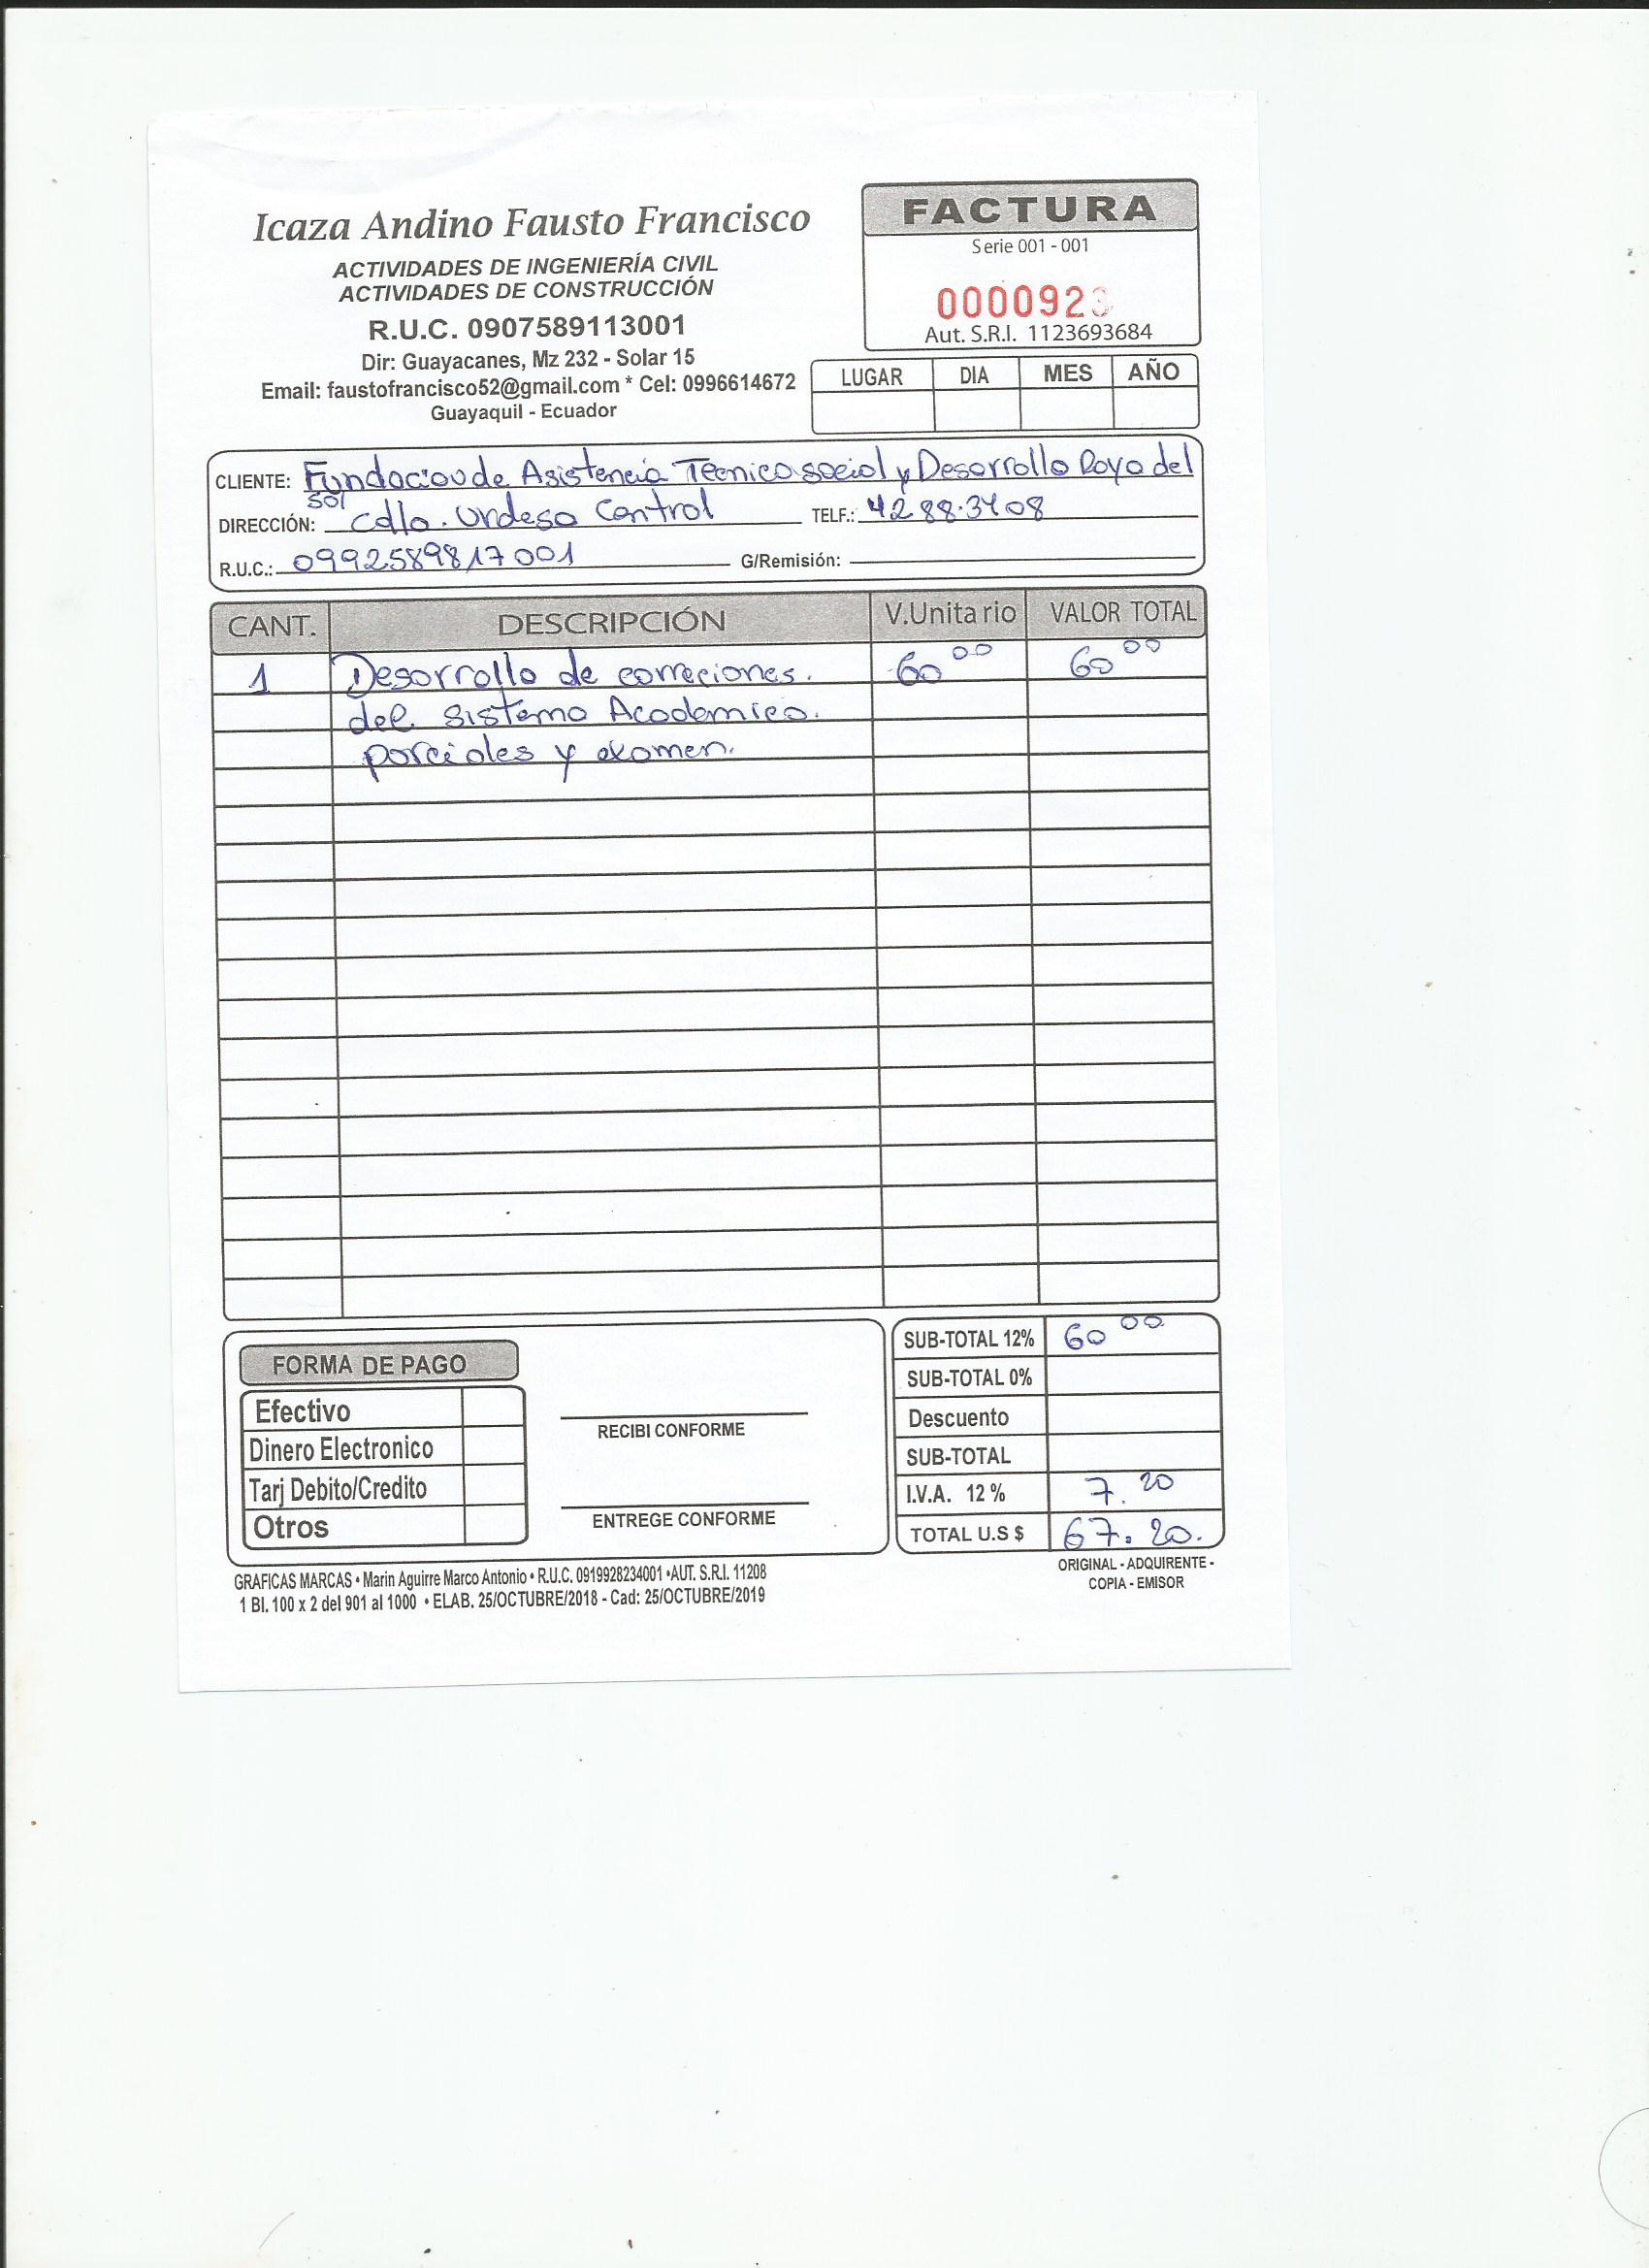 Icaza Andino Fausto Francisco
ACTIVIDADES DE INGENIERÍA CIVIL
ACTIVIDADES DE CONSTRUCCIÓN
R.U.C. 0907589113001
Dir: Guayacanes, Mz 232 - Solar 15
Email: faustofrancisco52@gmail.com * Cel: 0996614672
Guayaquil - Ecuador
FACTURA
Serie 001 - 001
0000923
Aut. S.R.I. 1123693684
LUGAR DIA MES AÑO
CLIENTE: Fundacion de Asistencia Tecnico social y Desarrollo Rayo del
sol
DIRECCIÓN: Cdla. Urdesa Central TELF.: 4288.3408
R.U.C.: 0992589817001 G/Remisión:
CANT. DESCRIPCIÓN V.Unitario VALOR TOTAL
1 Desarrollo de correciones. 60 00 60 00
del. Sistema Academico.
parciales y examen.
FORMA DE PAGO
Efectivo
Dinero Electronico
Tarj Debito/Credito
Otros
RECIBI CONFORME
ENTREGE CONFORME
SUB-TOTAL 12% 60 00
SUB-TOTAL 0%
Descuento
SUB-TOTAL
I.V.A. 12 % 7. 20
TOTAL U.S $ 67. 20.
GRAFICAS MARCAS • Marin Aguirre Marco Antonio • R.U.C. 0919928234001 •AUT. S.R.I. 11208
1 Bl. 100 x 2 del 901 al 1000 • ELAB. 25/OCTUBRE/2018 - Cad: 25/OCTUBRE/2019
ORIGINAL - ADQUIRENTE -
COPIA - EMISOR